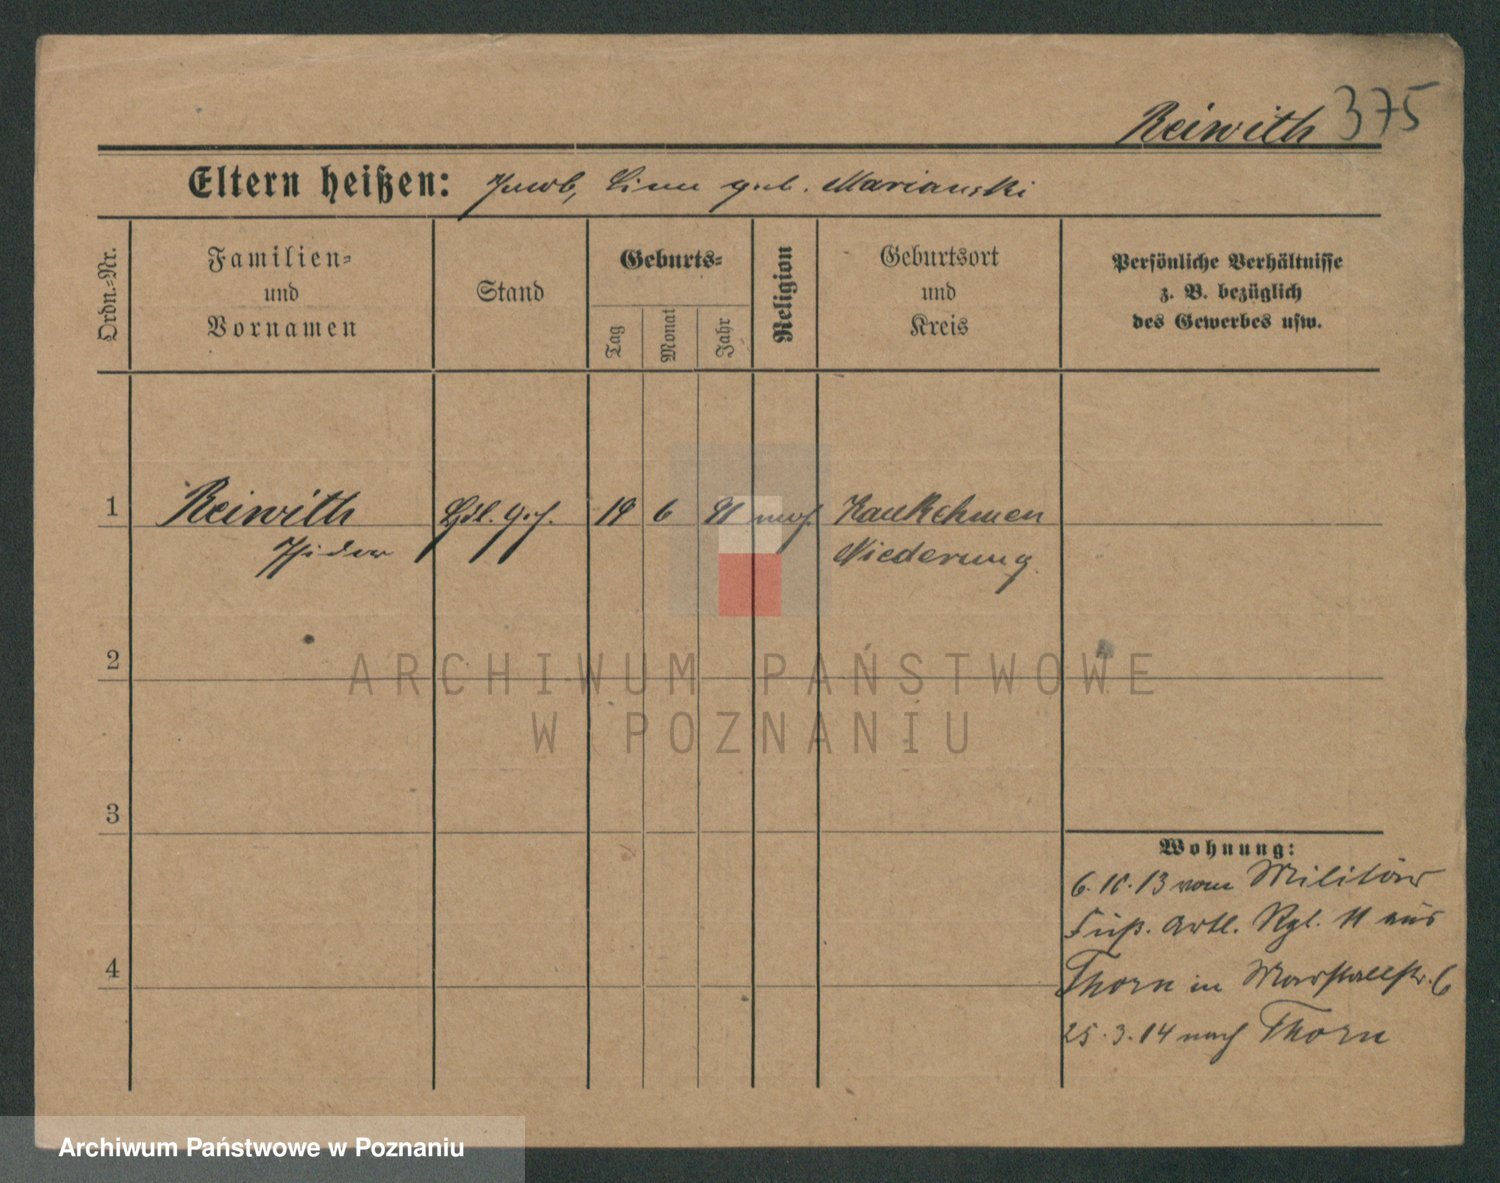 Reiwith 375
Eltern heißen: Jacob, Lina geb. Marianski
Ordn.-Nr.
Familien-
und
Vornamen
Stand
Geburts-
Tag
Monat
Jahr
Religion
Geburtsort
und
Kreis
Persönliche Verhältnisse
z. B. bezüglich
des Gewerbes usw.
1 Reiwith Hdl. Geh. 19 6 91 mos. Kaukehmen
Isidor Niederung
2
3
4
Wohnung:
6.10.13 vom Militär
Fuß. Artl. Rgt. 11 aus
Thorn in Marstallstr. 6
25.3.14 nach Thorn
ARCHIWUM PAŃSTWOWE
W POZNANIU
Archiwum Państwowe w Poznaniu